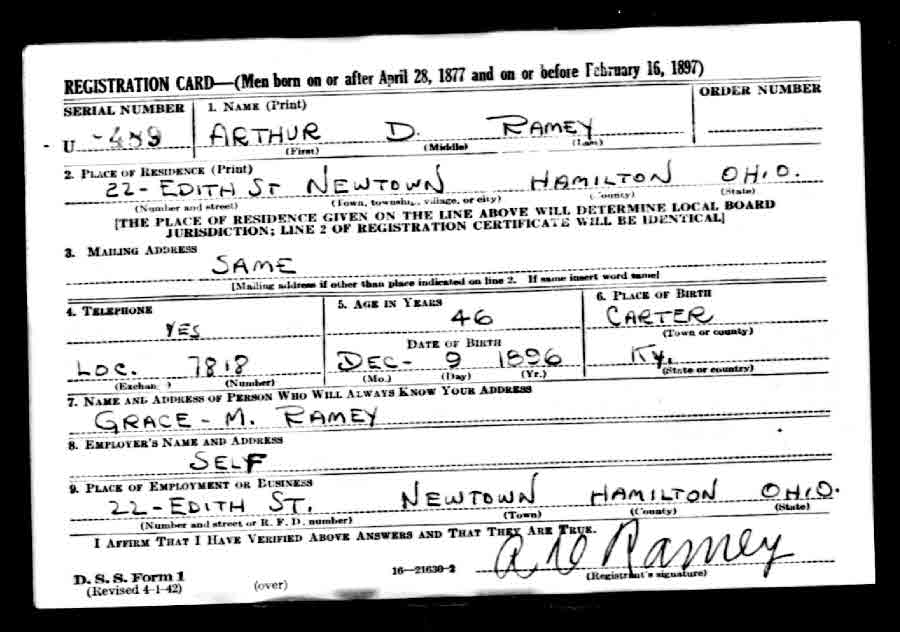 REGISTRATION CARD—(Men born on or after April 28, 1877 and on or before February 16, 1897)
SERIAL NUMBER 1. NAME (Print) ORDER NUMBER
U -489 ARTHUR D. RAMEY
(First) (Middle) (Last)
2. PLACE OF RESIDENCE (Print)
22- EDITH ST NEWTOWN HAMILTON OHIO.
(Number and street) (Town, township, village, or city) (County) (State)
[THE PLACE OF RESIDENCE GIVEN ON THE LINE ABOVE WILL DETERMINE LOCAL BOARD
JURISDICTION; LINE 2 OF REGISTRATION CERTIFICATE WILL BE IDENTICAL]
3. MAILING ADDRESS
SAME
[Mailing address if other than place indicated on line 2. If same insert word same]
4. TELEPHONE 5. AGE IN YEARS 6. PLACE OF BIRTH
YES 46 CARTER
DATE OF BIRTH (Town or county)
LOC. 7818 DEC- 9 1896 KY.
(Exchange) (Number) (Mo.) (Day) (Yr.) (State or country)
7. NAME AND ADDRESS OF PERSON WHO WILL ALWAYS KNOW YOUR ADDRESS
GRACE - M. RAMEY
8. EMPLOYER'S NAME AND ADDRESS
SELF
9. PLACE OF EMPLOYMENT OR BUSINESS
22-EDITH ST. NEWTOWN HAMILTON OHIO.
(Number and street or R. F. D. number) (Town) (County) (State)
I AFFIRM THAT I HAVE VERIFIED ABOVE ANSWERS AND THAT THEY ARE TRUE.
A D Ramey
D. S. S. Form 1 16—21630-2 (Registrant's signature)
(Revised 4-1-42) (over)